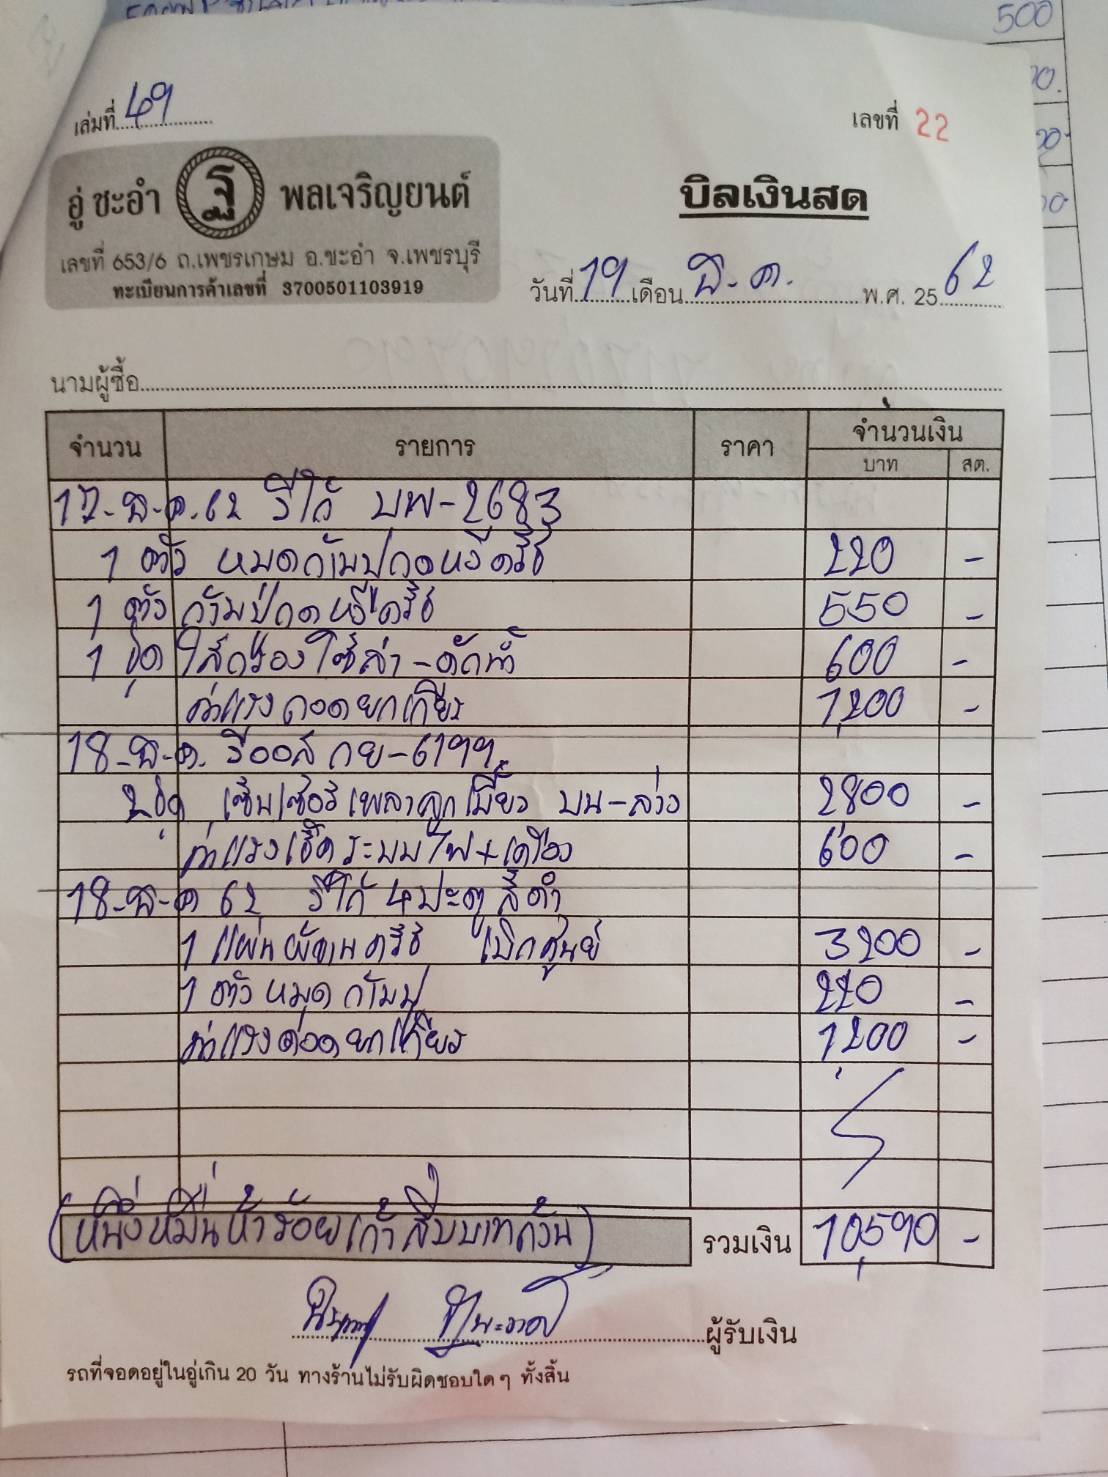 500
เล่มที่ 49
เลขที่ 22
อู่ ชะอำ ฐ พลเจริญยนต์
บิลเงินสด
เลขที่ 653/6 ถ.เพชรเกษม อ.ชะอำ จ.เพชรบุรี
ทะเบียนการค้าเลขที่ 3700501103919
วันที่ 19 เดือน พ.ค. พ.ศ. 2562
นามผู้ซื้อ
จำนวน รายการ ราคา จำนวนเงิน
บาท สต.
17-พ.ค.62 วีโก้ บพ-2683
1 ตัว หมดก้ามปูกดหวีครัช 220 -
1 ตัว ก้ามปูกดหวีครัช 550 -
1 ชุด ไส้กรองโซล่า-ดักน้ำ 600 -
ค่าแรงถอดยกเกียร 1,200 -
18-พ-ค. วีออส กย-6199
2ชุด เซ็นเซอร์เพลาลูกเบี้ยว บน-ล่าง 2800 -
ค่าแรงเช็คระบบไฟ+เครื่อง 600 -
18-พ-ค 62 วีโก้ 4ประตู สีดำ
1 แผ่นผ้าเบครัช เบิกศูนย์ 3200 -
1 ตัว หมุดก้ามปู 220 -
ค่าแรงถอดยกเกียร 1,200 -
(หนึ่งหมื่นห้าร้อยเก้าสิบบาทถ้วน) รวมเงิน 10,590 -
ผู้รับเงิน
รถที่จอดอยู่ในอู่เกิน 20 วัน ทางร้านไม่รับผิดชอบใด ๆ ทั้งสิ้น